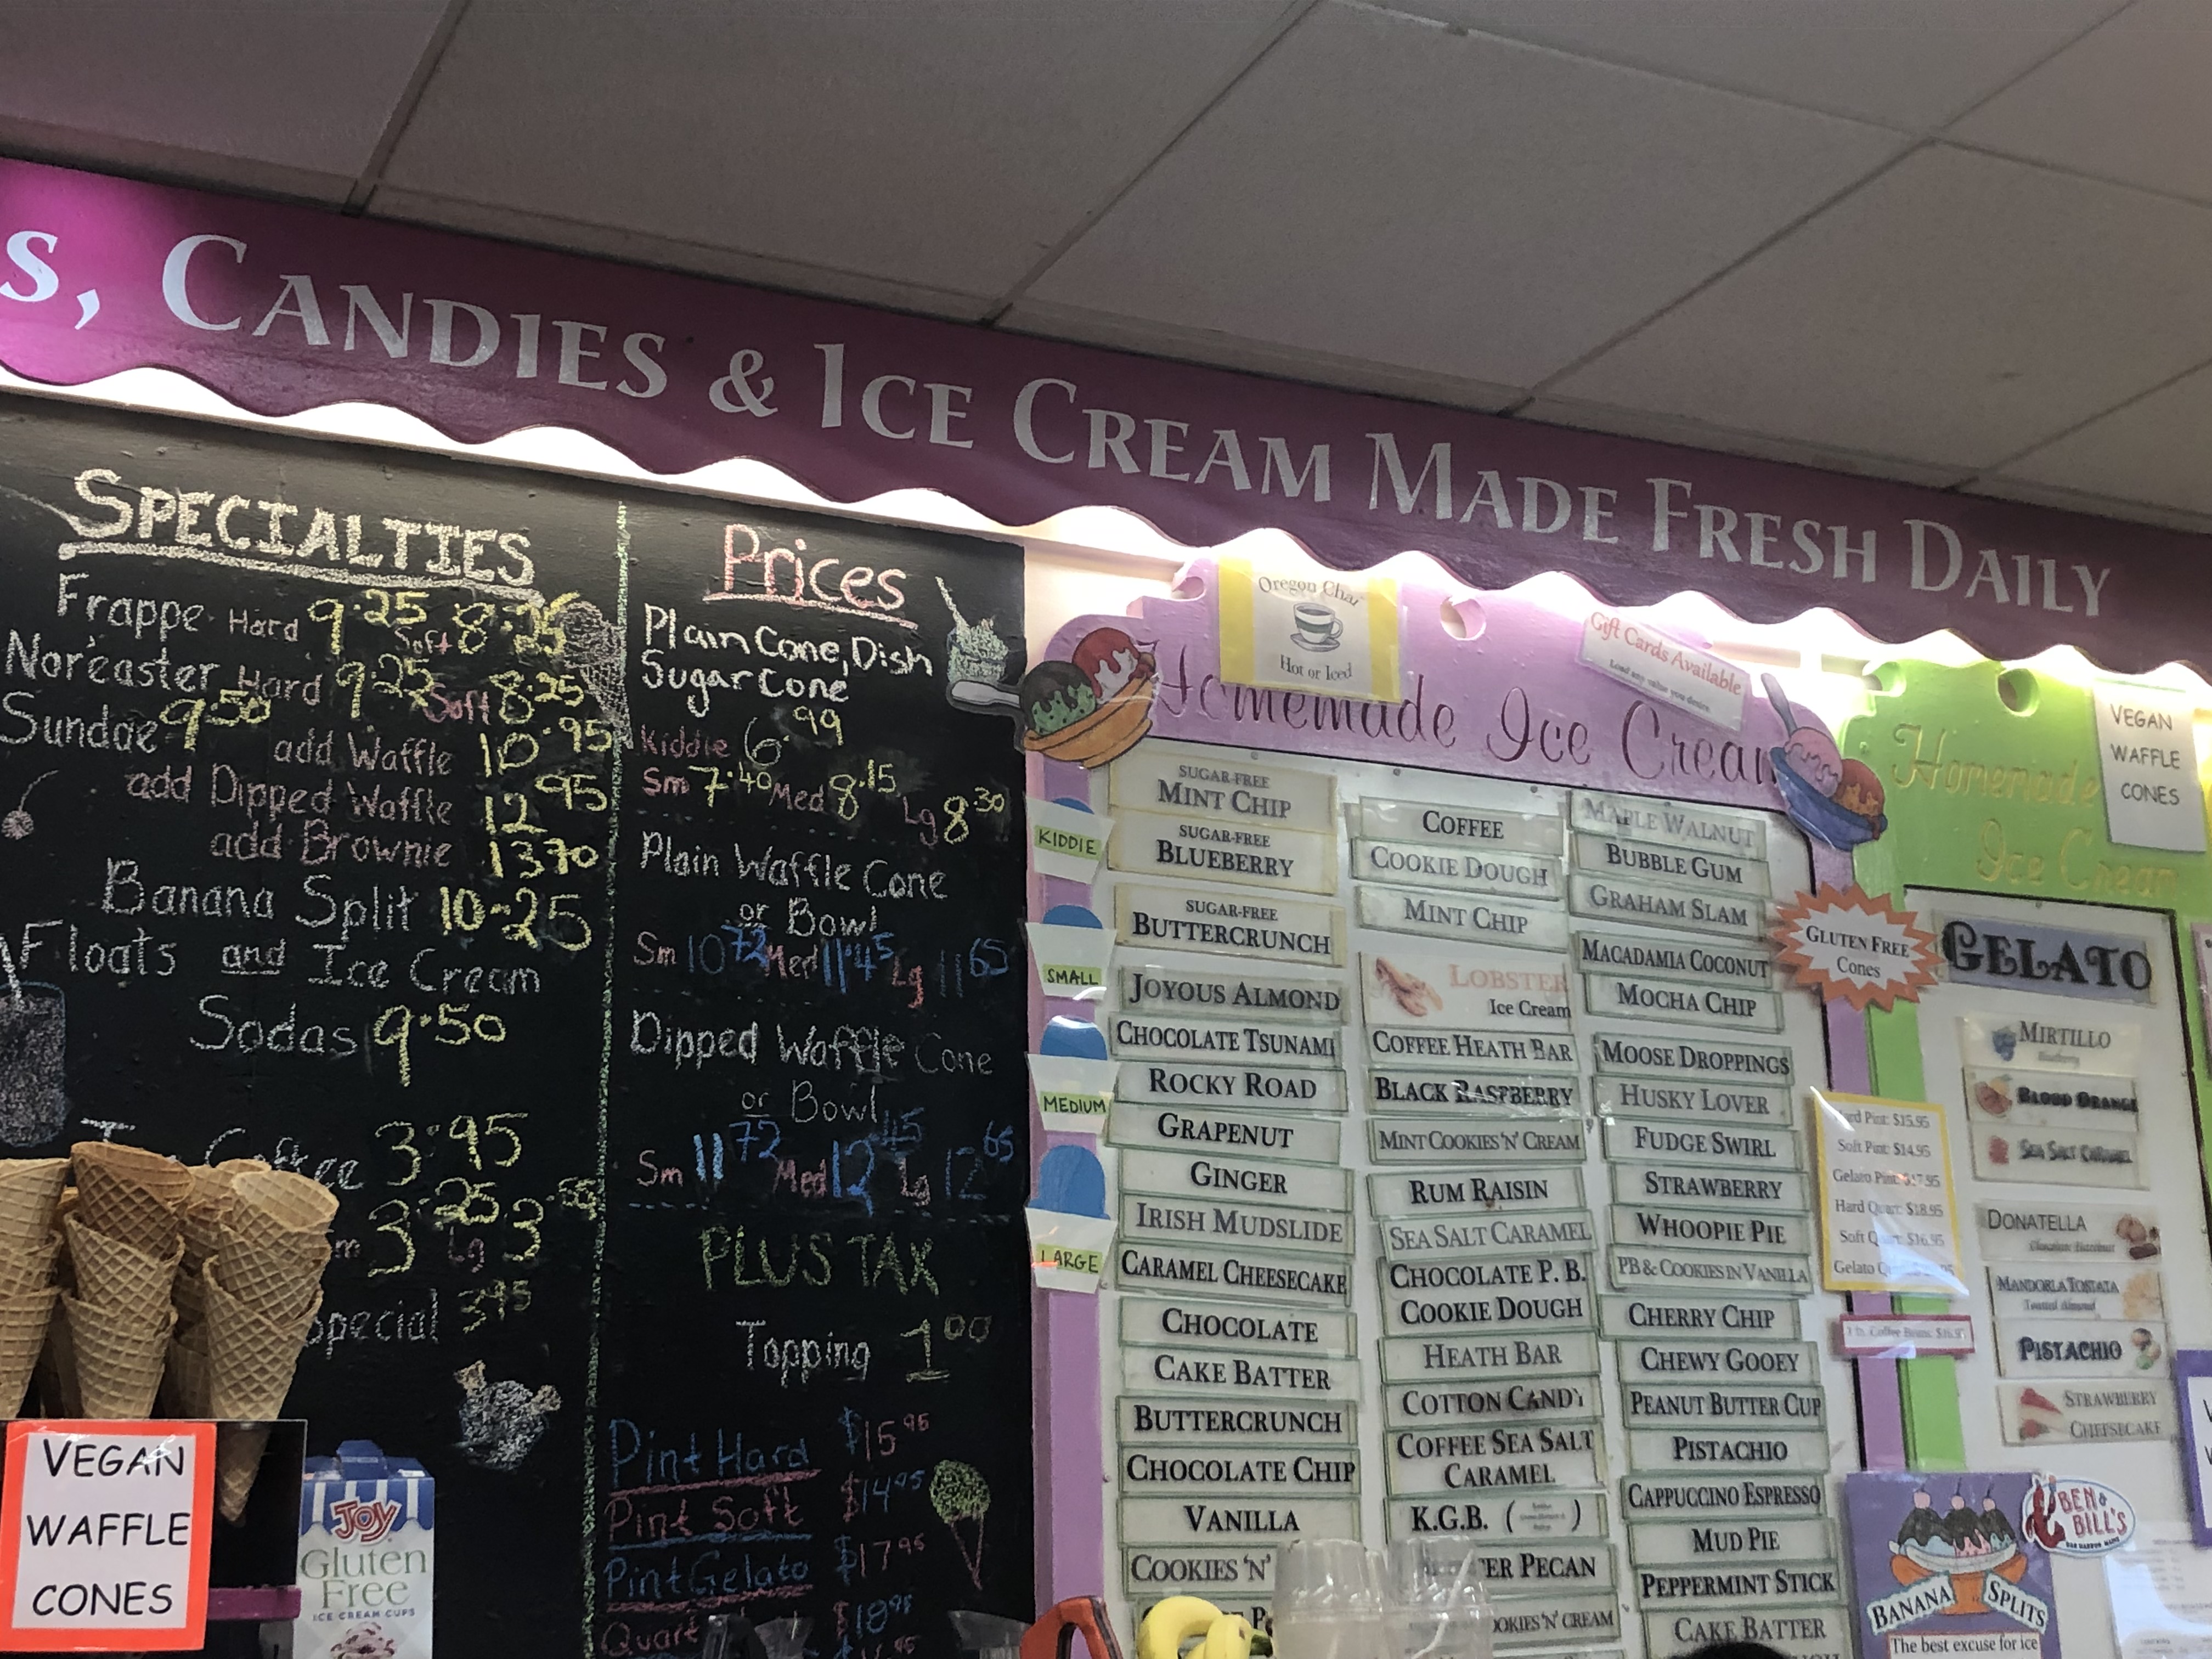 s, Candies & Ice Cream Made Fresh Daily
SPECIALTIES
Frappe Hard 9.25 Soft 8.25
Nor'easter Hard 9.25 Soft 8.25
Sundae 9.50
add Waffle 10.95
add Dipped Waffle 12.95
add Brownie 13.70
Banana Split 10.25
Floats and Ice Cream
Sodas 9.50
Coffee 3.95
Sm 3.25 Lg
Special 3.95
Prices
Plain Cone, Dish
Sugar Cone
Kiddie 6.99
Sm 7.40 Med 8.15 Lg 8.30
Plain Waffle Cone
or Bowl
Sm 10.72 Med 11.45 Lg 11.65
Dipped Waffle Cone
or Bowl
Sm 11.72 Med 12.45 Lg 12.65
PLUS TAX
Topping 1.00
Pint Hard $15.95
Pint Soft $14.95
Pint Gelato $17.95
Quart $18.95
VEGAN
WAFFLE
CONES
JOY
Gluten
Free
ICE CREAM CUPS
Oregon Chai
Hot or Iced
Gift Cards Available
Load any value you desire
Homemade Ice Cream
KIDDIE
SMALL
MEDIUM
LARGE
SUGAR-FREE
MINT CHIP
SUGAR-FREE
BLUEBERRY
SUGAR-FREE
BUTTERCRUNCH
JOYOUS ALMOND
CHOCOLATE TSUNAMI
ROCKY ROAD
GRAPENUT
GINGER
IRISH MUDSLIDE
CARAMEL CHEESECAKE
CHOCOLATE
CAKE BATTER
BUTTERCRUNCH
CHOCOLATE CHIP
VANILLA
COOKIES 'N'
COFFEE
COOKIE DOUGH
MINT CHIP
LOBSTER
Ice Cream
COFFEE HEATH BAR
BLACK RASPBERRY
MINT COOKIES 'N' CREAM
RUM RAISIN
SEA SALT CARAMEL
CHOCOLATE P. B.
COOKIE DOUGH
HEATH BAR
COTTON CANDY
COFFEE SEA SALT
CARAMEL
K.G.B. ( )
ER PECAN
OOKIES 'N' CREAM
MAPLE WALNUT
BUBBLE GUM
GRAHAM SLAM
MACADAMIA COCONUT
MOCHA CHIP
MOOSE DROPPINGS
HUSKY LOVER
FUDGE SWIRL
STRAWBERRY
WHOOPIE PIE
PB & COOKIES IN VANILLA
CHERRY CHIP
CHEWY GOOEY
PEANUT BUTTER CUP
PISTACHIO
CAPPUCCINO ESPRESSO
MUD PIE
PEPPERMINT STICK
CAKE BATTER
GLUTEN FREE
Cones
Hard Pint: $15.95
Soft Pint: $14.95
Gelato Pint: $17.95
Hard Quart: $18.95
Soft Quart: $16.95
Gelato
1 lb. Coffee Beans:
Homemade
Ice Cream
VEGAN
WAFFLE
CONES
GELATO
MIRTILLO
Blueberry
BLOOD ORANGE
SEA SALT CARAMEL
DONATELLA
Chocolate Hazelnut
MANDORLA TOSTATA
Toasted Almond
PISTACHIO
STRAWBERRY
CHEESECAKE
BEN &
BILL'S
BAR HARBOR MAINE
BANANA SPLITS
The best excuse for ice